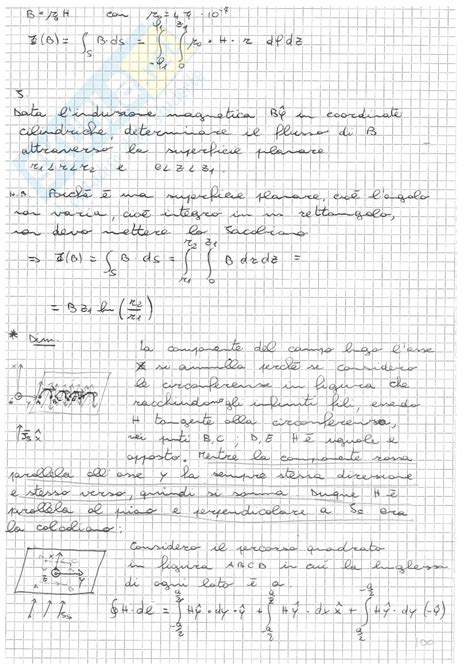 B = μ₀H con μ₀ = 4π · 10⁻⁷
Φ(B) = ∫_S B · ds = ∫_{-φ₁}^{φ₁} ∫_0^{z₁} μ₀ · H · r dφ dz
5.
Data l'induzione magnetica Bφ̂ in coordinate
cilindriche, determinare il flusso di B
attraverso la superficie planare
r₁<r<r₂ e 0<z<z₁.
N.B. Poiché è una superficie planare, cioè l'angolo
non varia, cioè integro in un rettangolo,
non devo mettere lo Jacobiano
⇒ Φ(B) = ∫_S B · ds = ∫_{r₁}^{r₂} ∫_0^{z₁} B dr dz =
= B z₁ ln (r₂/r₁)
* Dim.
La componente del campo lungo l'asse
x si annulla perché se considero
le circonferenze in figura che
racchiudono gli infiniti fili, essendo
H tangente alla circonferenza,
nei punti B, C, D, E H è uguale e
opposto. Mentre la componente rossa
parallela all'asse y ha sempre stessa direzione
e stesso verso, quindi si somma. Dunque H è
parallela al piano e perpendicolare a Js ora
la calcoliamo:
Considero il percorso quadrato
in figura ABCD in cui la lunghezza
di ogni lato è a.
∮H · dl = ∫_{-a/2}^{a/2} Hŷ · dy · ŷ + ∫_{-a/2}^{a/2} Hŷ · dx x̂ + ∫_{a/2}^{-a/2} Hŷ · dy (-ŷ)
100